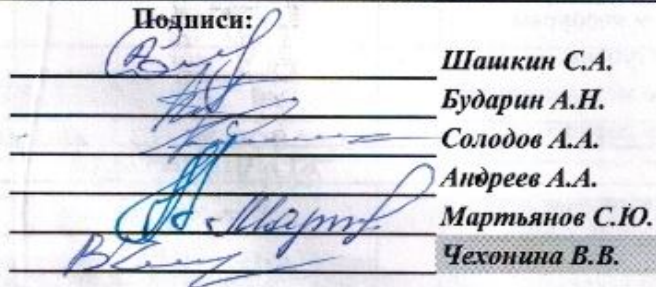 Подписи:
Шашкин С.А.
Бударин А.Н.
Солодов А.А.
Андреев А.А.
Мартьянов С.Ю.
Чехонина В.В.